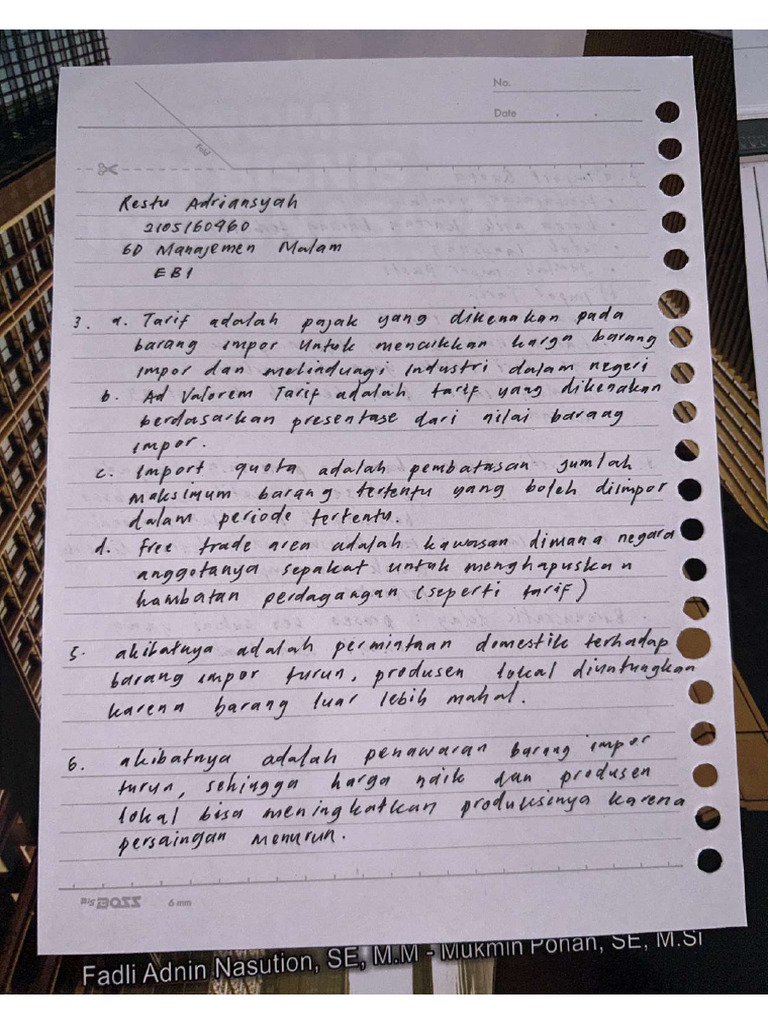 No.
Date
Fold
Restu Adriansyah
2105160960
6D Manajemen Malam
EBI
3. a. Tarif adalah pajak yang dikenakan pada
barang impor untuk menaikkan harga barang
impor dan melindungi industri dalam negeri
b. Ad Valorem Tarif adalah tarif yang dikenakan
berdasarkan presentase dari nilai barang
impor.
c. Import quota adalah pembatasan jumlah
maksimum barang tertentu yang boleh diimpor
dalam periode tertentu.
d. free trade area adalah kawasan dimana negara
anggotanya sepakat untuk menghapuskan
hambatan perdagangan (seperti tarif)
5. akibatnya adalah permintaan domestik terhadap
barang impor turun, produsen lokal diuntungkan
karena barang luar lebih mahal.
6. akibatnya adalah penawaran barang impor
turun, sehingga harga naik dan produsen
lokal bisa meningkatkan produksinya karena
persaingan menurun.
Big BOSS 6 mm
Fadli Adnin Nasution, SE, M.M - Mukmin Pohan, SE, M.Si